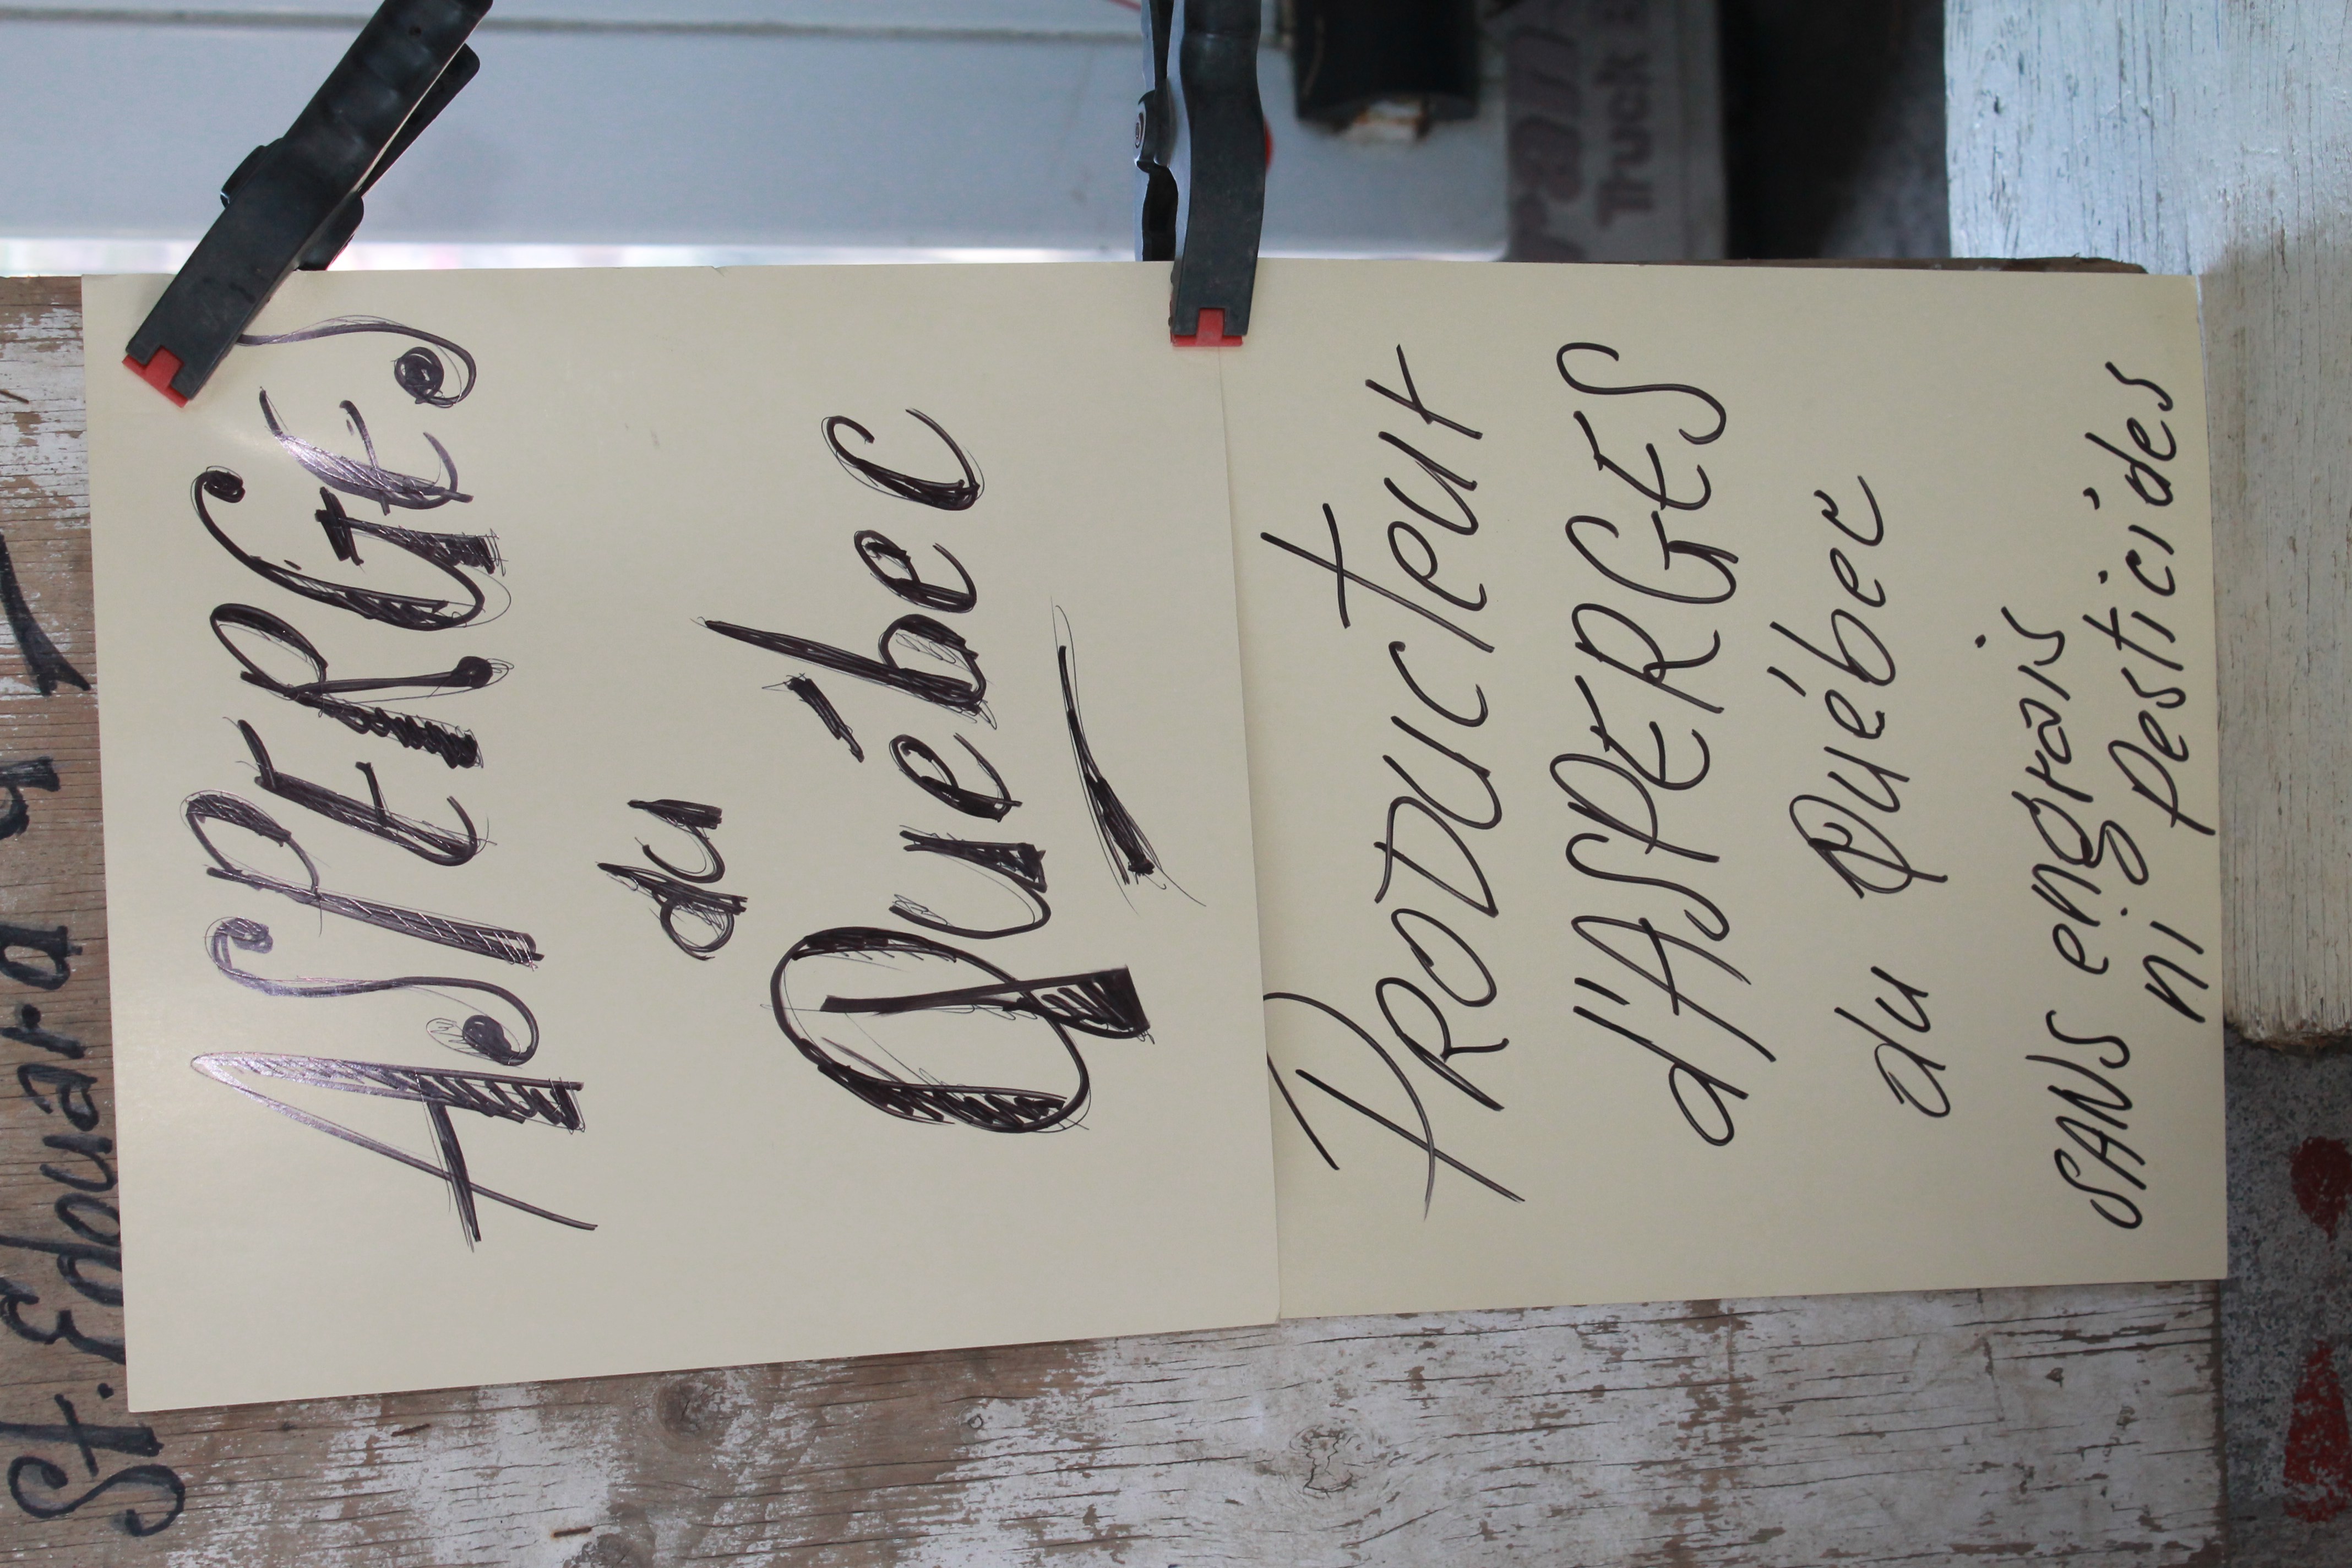 St. Edouard
ASPERGES
du
Québec
PRODUCTEUR
d'ASPERGES
du Québec
SANS engrais
ni pesticides
Truck